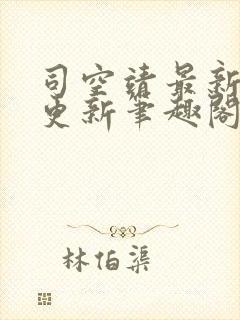 司空靖最新
更新笔趣阁
林伯渠